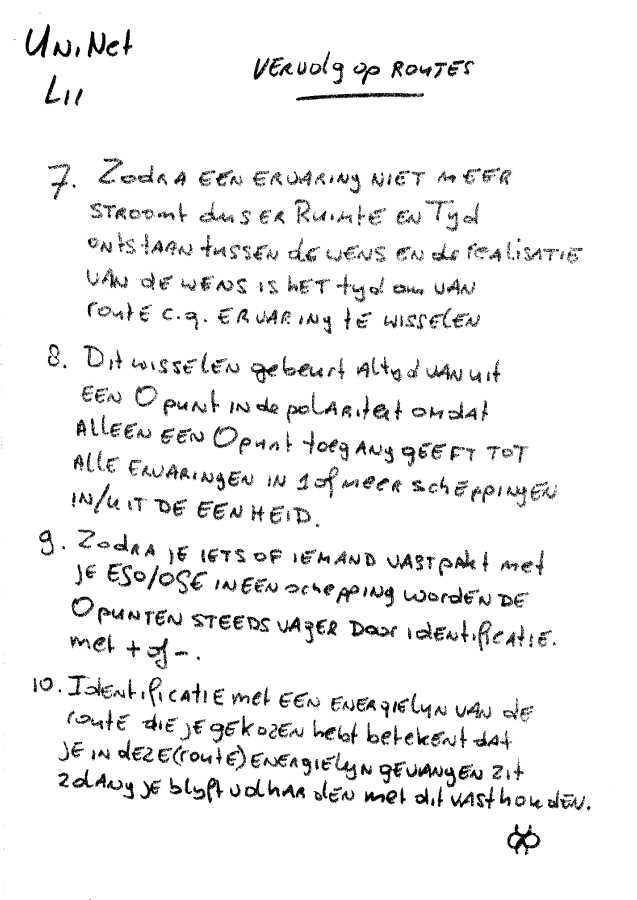 UniNet
LII
VERVOLG OP ROUTES
7. ZODRA EEN ERVARING NIET MEER
STROOMT dus ER RUIMTE EN Tyd
ONTSTAAN TUSSEN de WENS EN de REALISATIE
VAN de WENS IS HET tyd om VAN
ROUTE c.q. ERVARING TE WISSELEN
8. DIT WISSELEN gebeurt ALTyd VANUIT
EEN 0 punt IN de polARITEIT omdat
ALLEEN EEN 0punt toegANg gEEFT TOT
ALLE ERVARINGEN IN 1 of MEER SCHEPPINGEN
IN/UIT DE EENHEID.
9. ZODRA JE IETS OF IEMAND VASTPAKT met
JE ESO/OSE IN EEN SCHEPPING WORDEN DE
0PUNTEN STEEDS VAGER DOOR IDENTIFICATIE.
met + of -.
10. IDENTIFICATIE met EEN ENERGIELYN VAN de
route die JE gEKOZEN hebt betekent dat
JE IN deze (route) ENERGIELYN GEVANGEN ZIT
ZOLANG JE blyft VOLHARDEN met dit VASThouden.